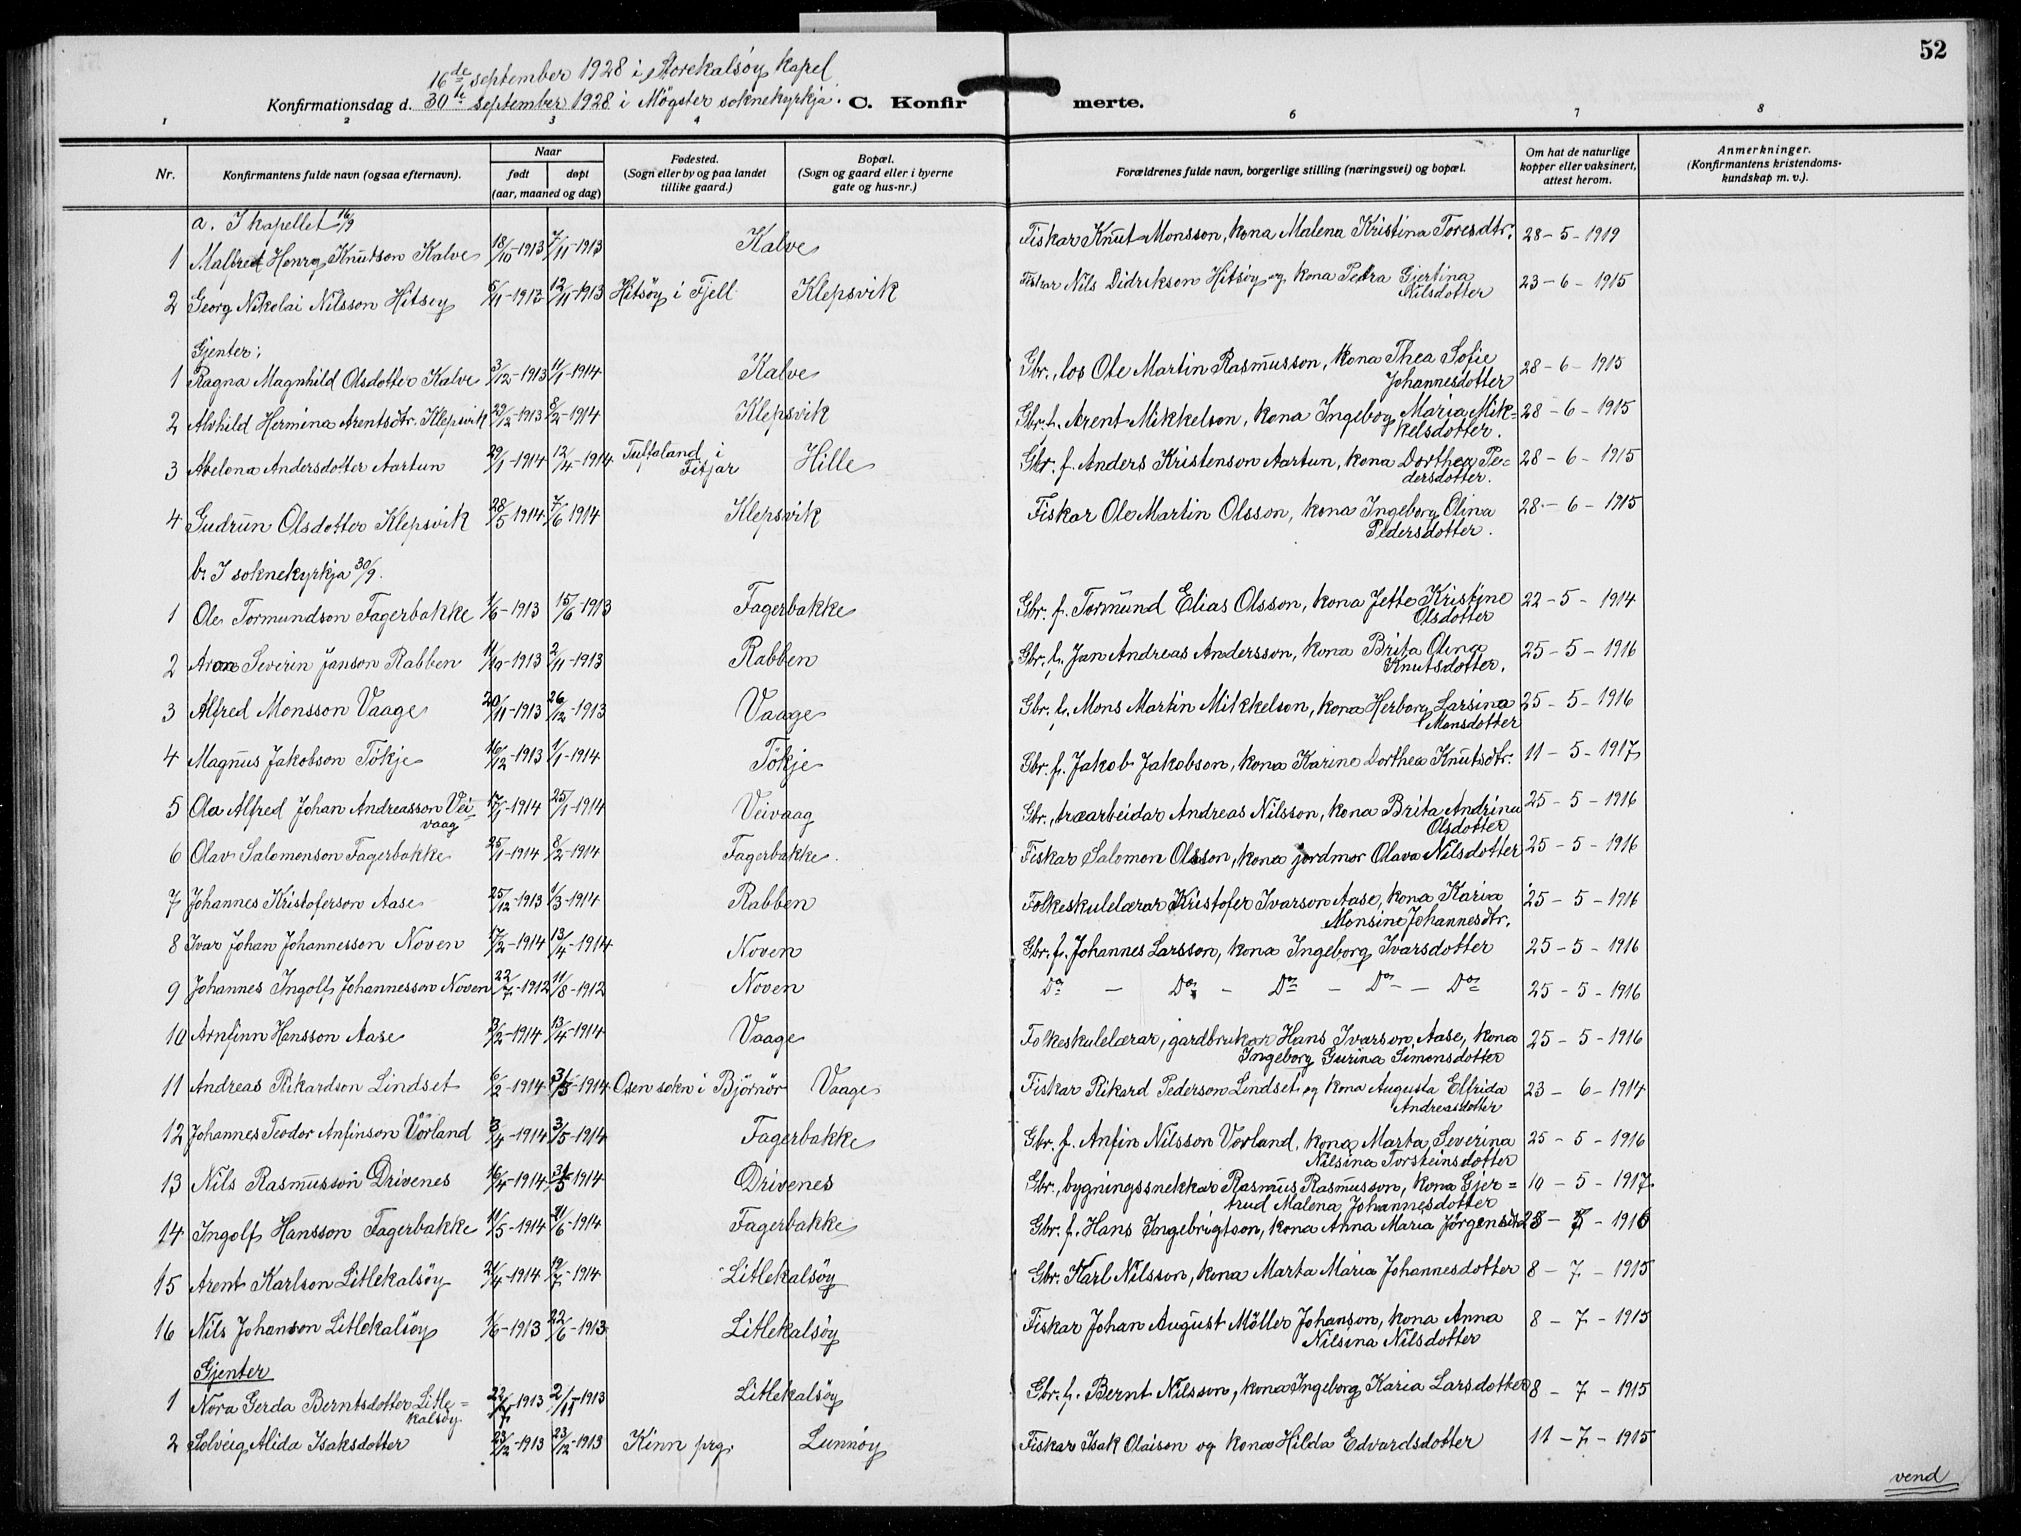 52
16de september 1928 i Storekalsøy kapel
Konfirmationsdag d. 30te september 1928 i Møgster soknekyrkja. C. Konfirmerte.
1 2 3 4 6 7 8
Nr.
Konfirmantens fulde navn (ogsaa efternavn).
Naar
født
døpt
(aar, maaned og dag)
Fødested.
(Sogn eller by og paa landet
tillike gaard.)
Bopæl.
(Sogn og gaard eller i byerne
gate og hus-nr.)
Forældrenes fulde navn, borgerlige stilling (næringsvei) og bopæl.
Om hat de naturlige
kopper eller vaksinert,
attest herom.
Anmerkninger.
(Konfirmantens kristendoms-
kundskap m. v.).
a. I kapellet 16/9
1 Malfred Henry Knutson Kalve 18/10-1913 7/11-1913 Kalve Fiskar Knut Monsson, kona Malena Kristina Toresdtr. 28-5-1919
2 Georg Nikolai Nilsson Hitsøy 5/11-1913 12/11-1913 Hitsøy i Fjell Klepsvik Fiskar Nils Didrikson Hitsøy og kona Petra Gjertina 23-6-1915
Nilsdotter
Gjenter:
1 Ragna Magnhild Olsdotter Kalve 3/12-1913 11/1-1914 Kalve Gbr., los Ole Martin Rasmusson, kona Thea Sofie 28-6-1915
Johannesdotter
2 Alvhild Hermina Arentsdtr. Klepsvik 29/12-1913 8/2-1914 Klepsvik Gbr. f. Arent Mikkelson, kona Ingeborg Maria Mik= 28-6-1915
kelsdotter.
3 Abelona Andersdotter Aartun 29/1-1914 12/4-1914 Tuftaland i Hille Gbr. f. Anders Kristenson Aartun, kona Dorthea Pe- 28-6-1915
Fitjar dersdotter.
4 Gudrun Olsdotter Klepsvik 28/5-1914 7/6-1914 Klepsvik Fiskar Ole Martin Olsson, kona Ingeborg Olina 28-6-1915
Pedersdotter.
b. I soknekyrkja 30/9.
1 Ole Tormundson Fagerbakke 1/6-1913 15/6-1913 Fagerbakke Gbr. f. Tormund Elias Olsson, kona Jette Kristine 22-5-1914
Olsdotter
2 Aron Severin Janson Rabben 11/10-1913 2/11-1913 Rabben Gbr. f. Jan Andreas Andersson, kona Brita Olina 25-5-1916
Knutsdotter.
3 Alfred Monsson Vaage 20/11-1913 26/12-1913 Vaage Gbr. f. Mons Martin Mikkelson, kona Herborg Larsina 25-5-1916
Monsdotter
4 Magnus Jakobson Tøkje 16/12-1913 1/1-1914 Tøkje Gbr. f. Jakob Jakobson, kona Karine Dorthea Knutsdtr. 11-5-1917
5 Ola Alfred Johan Andreasson Vei- 17/1-1914 25/1-1914 Veivaag Gbr., træarbeidar Andreas Nilsson, kona Brita Andrina 25-5-1916
vaag Olsdotter
6 Olav Salomonson Fagerbakke 25/1-1914 8/2-1914 Fagerbakke. Fiskar Salomon Olsson, kona jordmor Olava Nilsdotter 25-5-1916
7 Johannes Kristoferson Aase 25/12-1913 1/3-1914 Rabben Folkeskulelærar Kristofer Ivarson Aase, kona Karia 25-5-1916
Monsine Johannesdtr.
8 Ivar Johan Johannesson Noven 17/2-1914 13/4-1914 Noven Gbr. f. Johannes Larsson, kona Ingeborg Ivarsdotter 25-5-1916
9 Johannes Ingolf Johannesson Noven 22/7-1912 11/8-1912 Noven Do - Do - Do - Do - Do 25-5-1916
10 Arnfinn Hansson Aase 3/2-1914 13/4-1914 Vaage Folkeskulelærar, gardbrukar Hans Ivarson Aase, kona 25-5-1916
Ingeborg Gurina Simonsdotter
11 Andreas Rikardson Lindset 6/2-1914 31/5-1914 Osen sokn i Bjørnør Vaage Fiskar Rikard Pederson Lindset og kona Augusta Elfrida 23-6-1914
Andreasdotter
12 Johannes Teodor Anfinson Vorland 3/4-1914 3/5-1914 Fagerbakke Gbr. f. Anfin Nilsson Vorland, kona Marta Severina 25-5-1916
Nilsina Torsteinsdotter
13 Nils Rasmusson Drivenes 16/4-1914 31/5-1914 Drivenes Gbr., bygningssnekkar Rasmus Rasmusson, kona Gjer= 10-5-1917.
trud Malena Johannesdotter
14 Ingolf Hansson Fagerbakke 11/5-1914 21/6-1914 Fagerbakke Gbr. f. Hans Ingebrigtson, kona Anna Maria Jørgensdtr. 25-5-1916
15 Arent Karlson Litlekalsøy 21/4-1914 19/7-1914 Litlekalsøy Gbr. Karl Nilsson, kona Marta Maria Johannesdotter 8-7-1915
16 Nils Johanson Litlekalsøy 1/6-1913 22/6-1913 Litlekalsøy Fiskar Johan August Møller Johanson, kona Anna 8-7-1915
Nilsina Nilsdotter
Gjenter
1 Nora Gerda Berntsdotter Litle= 22/7-1913 2/11-1913 Litlekalsøy Gbr. f. Bernt Nilsson, kona Ingeborg Karia Larsdotter 8-7-1915
kalsøy
2 Solveig Alida Isaksdotter 23/2-1913 23/12-1913 Kinn prg. Lunnøy Fiskar Isak Olaison og kona Hilda Edvardsdotter 11-7-1915
vend